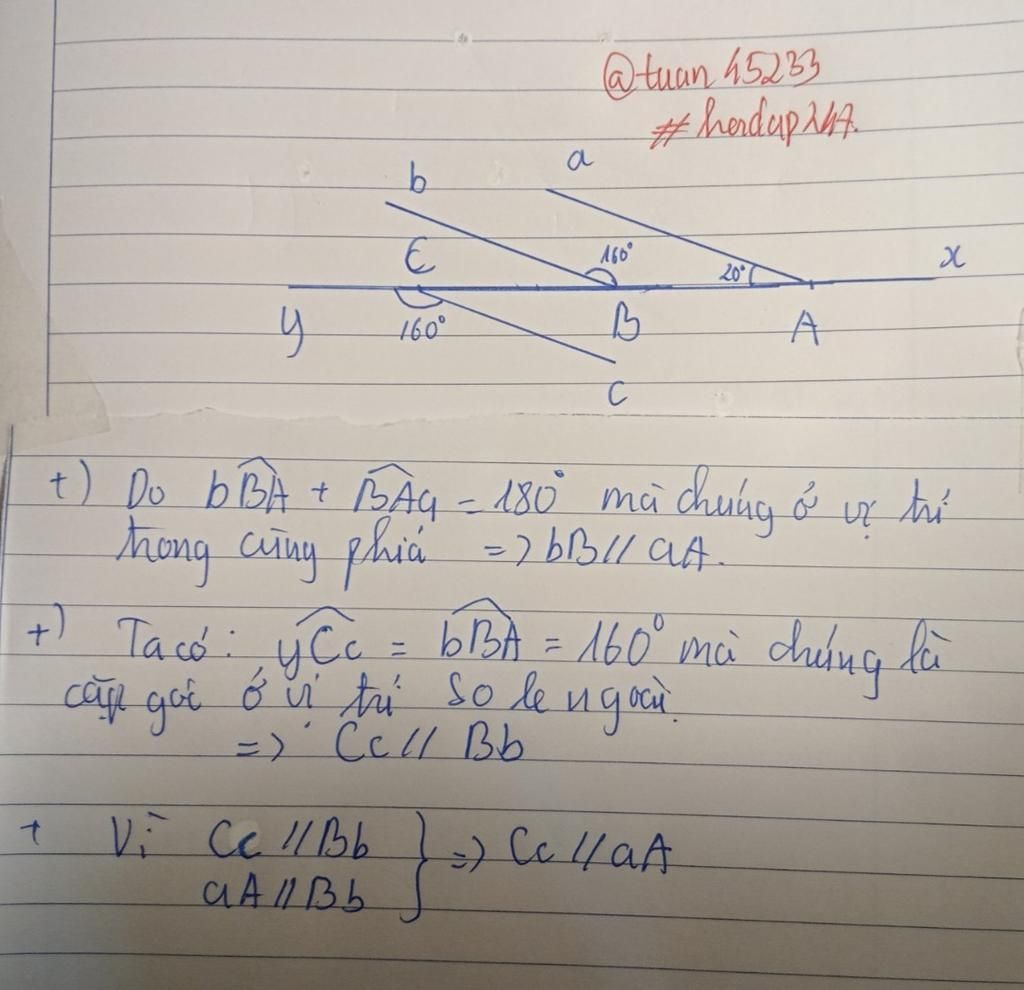 @tuan45233
#hoidap247.
a
b
C
160°
20°
x
y
160°
B
A
c
+) Do bBA + BAa = 180° mà chúng ở vị trí
trong cùng phía => bB // aA.
+) Ta có: yCc = bBA = 160° mà chúng là
cặp góc ở vị trí so le ngoài.
=> Cc // Bb
+ Vì Cc // Bb } => Cc // aA
aA // Bb